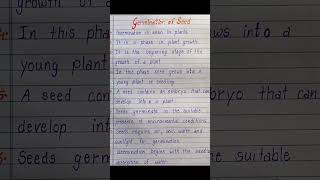 Germination of Seed
Germination is seen in plants
It is a phase in plant growth
It is the beginning stage of the
growth of a plant
In this phase seed grows into a
young plant or seedling
A seed contains an embryo that can
develop into a plant
Seeds germinate in the suitable
presence of environmental conditions
Seeds requires air, soil, water and
sunlight for germination
Germination begins with the seed's
absorption of water
4. In this
young plant
5. A seed con
develop into
6. Seeds germ
ows into a
yo that can
e suitable